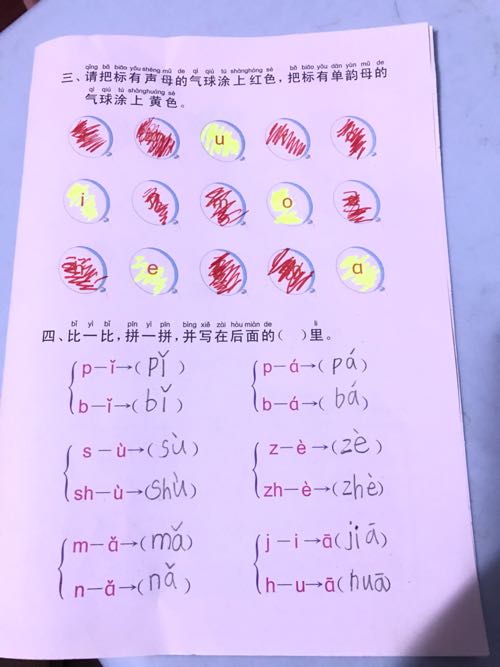 qǐng bǎ biāo yǒu shēng mǔ de qì qiú tú shàng hóng sè bǎ biāo yǒu dān yùn mǔ de
三、请把标有声母的气球涂上红色，把标有单韵母的
qì qiú tú shàng huáng sè
气球涂上黄色。
u
i o
e ɑ
bǐ yì bǐ pīn yì pīn bìng xiě zài hòu miàn de lǐ
四、比一比，拼一拼，并写在后面的（ ）里。
p－ǐ→(pǐ) p－á→(pá)
b－ǐ→(bǐ) b－á→(bá)
s－ù→(sù) z－è→(zè)
sh－ù→(shù) zh－è→(zhè)
m－ǎ→(mǎ) j－i→ā(jiā)
n－ǎ→(nǎ) h－u→ā(huā)